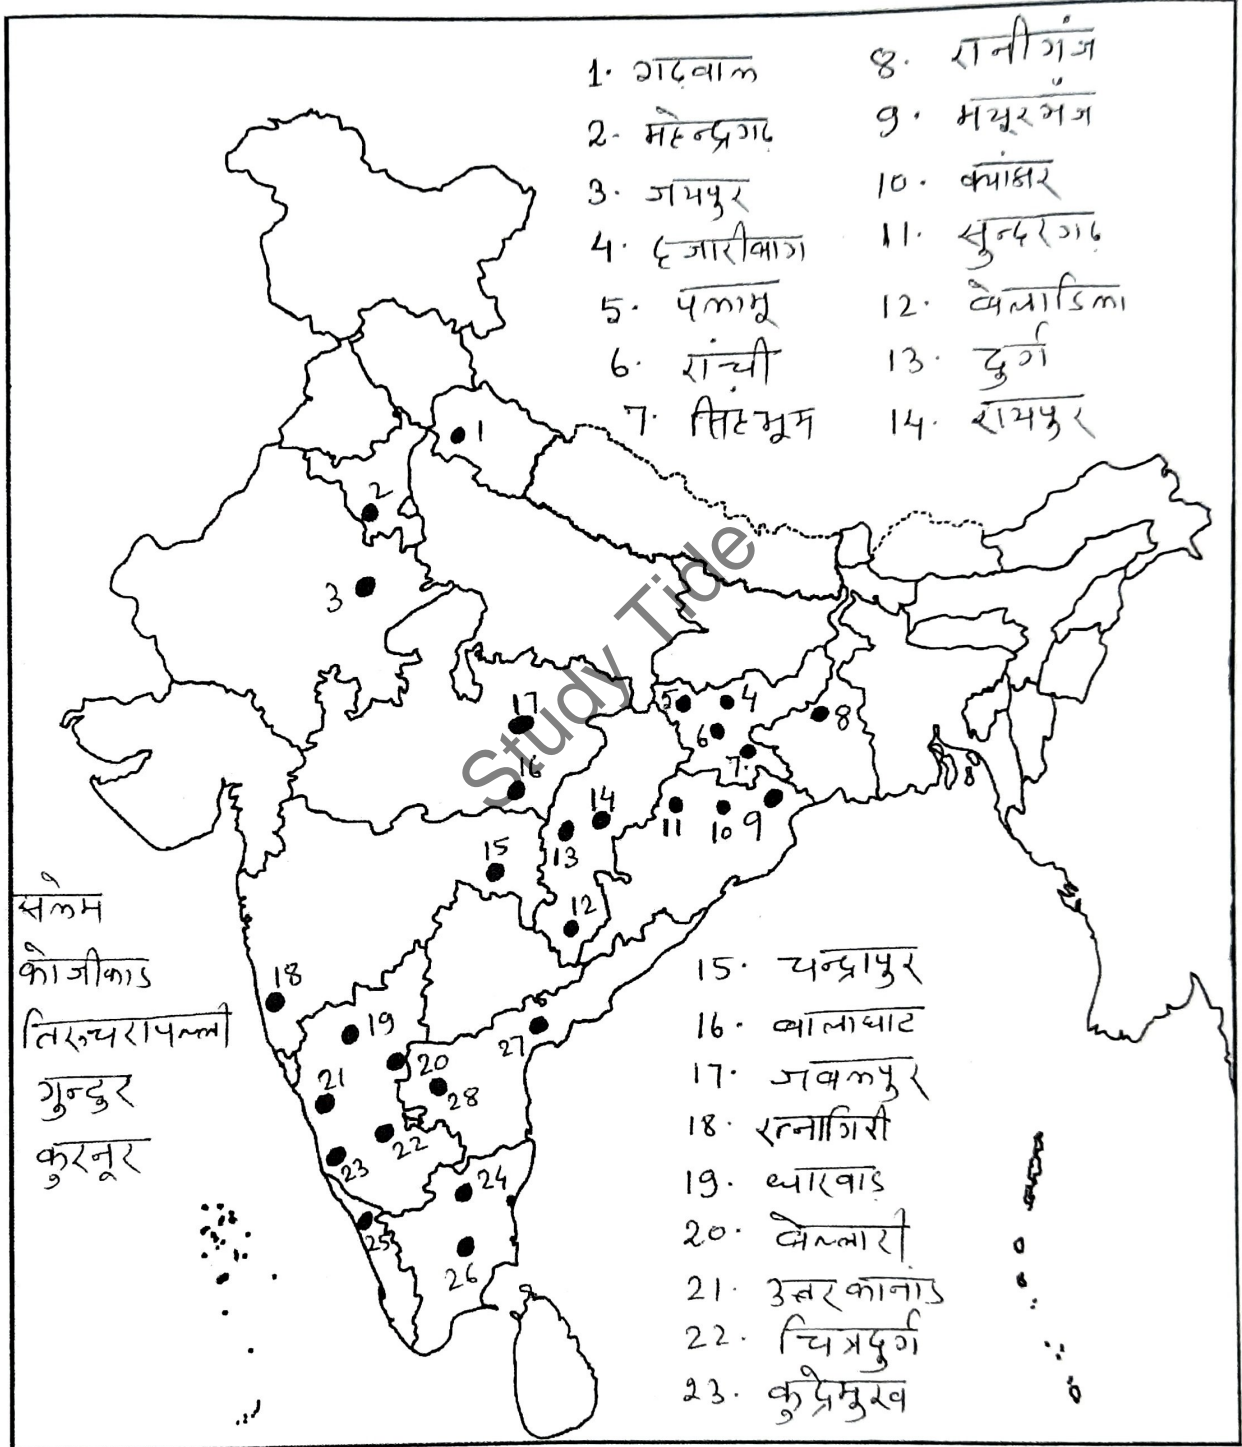 1. गढ़वाल
2. महेन्द्रगढ़
3. जयपुर
4. हजारीबाग
5. पलामू
6. रांची
7. सिंहभूम
8. रानीगंज
9. मयूरगंज
10. क्योंझर
11. सुन्दरगढ़
12. बेलाडिला
13. दुर्ग
14. रायपुर
1
2
3
17
5
4
6
8
7
16
14
11
10
9
13
15
12
18
19
20
27
21
28
22
23
24
25
26
सलेम
कोजीकाड
तिरुचरापल्ली
गुन्टुर
कुरनूर
15. चन्द्रापुर
16. बालाघाट
17. जबलपुर
18. रत्नागिरी
19. धारवाड़
20. बेल्लारी
21. उत्तर कानाड
22. चित्रदुर्ग
23. कुद्रेमुख
Study Tide